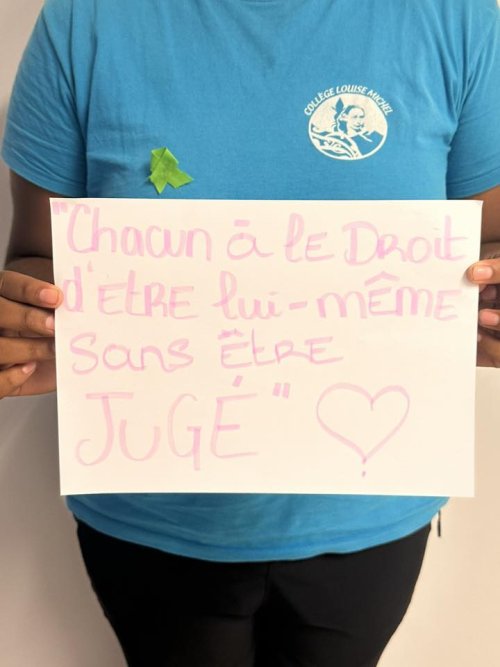 COLLÈGE LOUISE MICHEL
"Chacun à le Droit
d'Etre lui-même
sans être
JUGÉ"